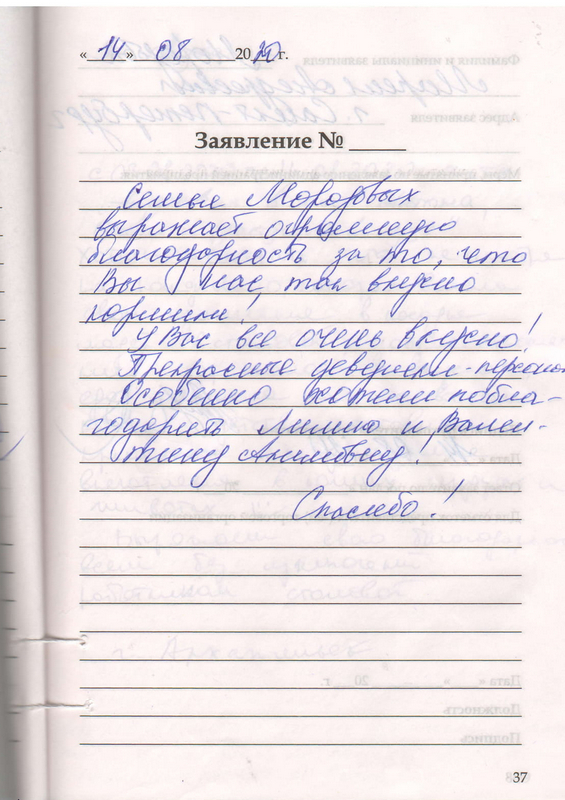 « 14 » 08 2020 г.
Заявление №
Семья Морозовых
выражает огромную
благодарность за то, что
Вы нас так вкусно
кормили!
У Вас все очень вкусно!
Прекрасные девушки-персонал
Особенно хотели побла-
годарить Лилию и Вален-
тину Акимовну!
Спасибо!
37